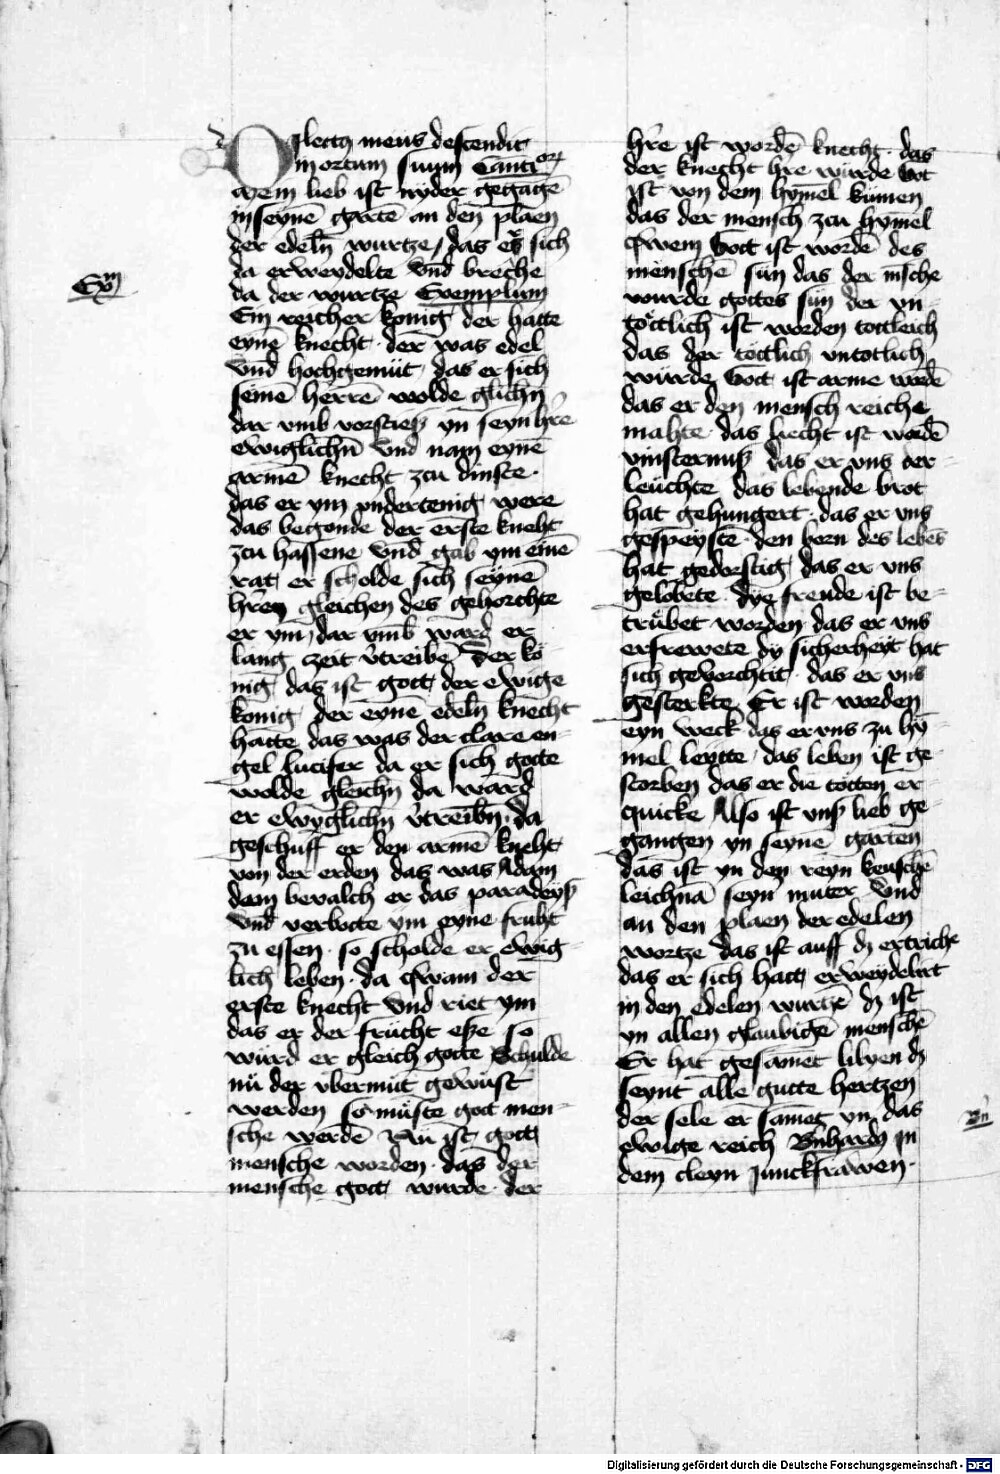 Dilectus meus descendit
in ortum suum Canticorum
Mein lieb ist nyder gegangē
in seynē gartē an den plaen
der edelñ wurtze / das er sich
da erweydelte vnd breche
da der wurtze Exemplum
Exm
Ein reicher konig der hatte
eynē knecht · der was edel
vnd hochgemüt · das er sich
seinē herrē wolde glichñ
dar vmb vorstiesz yn seyn hr̄e
ewiglichñ vnd nam eynē
armē knecht zcu dinste ·
das er ym vndertenig were
das begonde der erste kneht
zcu hassene vnd gab ym einē
rat er scholde sich seynē
hr̄en gleichen des gehorchte
er ym / dar vmb ward er
lang zeit v̄treibē Der kö
nig das ist gott der ewige
konig der eynē edelñ knecht
hatte das was der clare en-
gel lucifer da er sich gotte
wolde gleichñ da ward
er ewyglichñ v̄treibñ · da
geschuff er den armē kneht
von der erden das was Adam
dem bevalch er das paradeysz
vnd verbotte ym eyne fruht
zu essen · so scholde er ewig-
lich leben · da qwam der
erste knecht vnd riet ym
das er der frücht esze so
würd er gleich gotte Schulde
nü der vbermüt gewüst
werden so müste got men-
sche werdē Nu ist gott
mensche worden · das der
mensche gott wurde · der
hr̄e ist wordē knecht · das
der knecht hre wurde Got
ist von dem hymel kümen
das der mensch zcu hymel
qwem Gott ist wordē des
menschē sün das der msche
wurde gottes sün der vn-
töttlich ist worden tottleich
das der töttlich vntotlich
würde Gott ist arme wordē
das er den mensch reiche
mahte · das liecht ist wordē
vinsternusz das er vns der-
leuchte das lebende brot
hat gehungert · das er vns
gespeystē · den born des lebēs
hat gedorstig das er vns
gelobete · dye freude ist be-
trübet worden das er vns
erfrewete dy sicherheyt hat
sich gevorchtit · das er vns
gesterkte Er ist worden
eyn weck das er vns zu hy-
mel leytte · das leben ist ge-
storben das er die totten er-
quicke Also ist vnsz lieb ge-
gangen yn seynē garten
das ist yn den reyn keuschē
leichnā seyn muter vnd
an den plaen der edelen
wortze das ist auff dz ertriche
das er sich hatt erweydelirt
in den edelen wurtzē dz ist
yn allen glaubigē menschē
Er hat gesamet lilyen dz
seynt alle gutte hertzen
der sele er samet yn das
ewige reich Bnhardz In
Bn
dem cleyn Junckfrawen ·
Digitalisierung gefördert durch die Deutsche Forschungsgemeinschaft - DFG